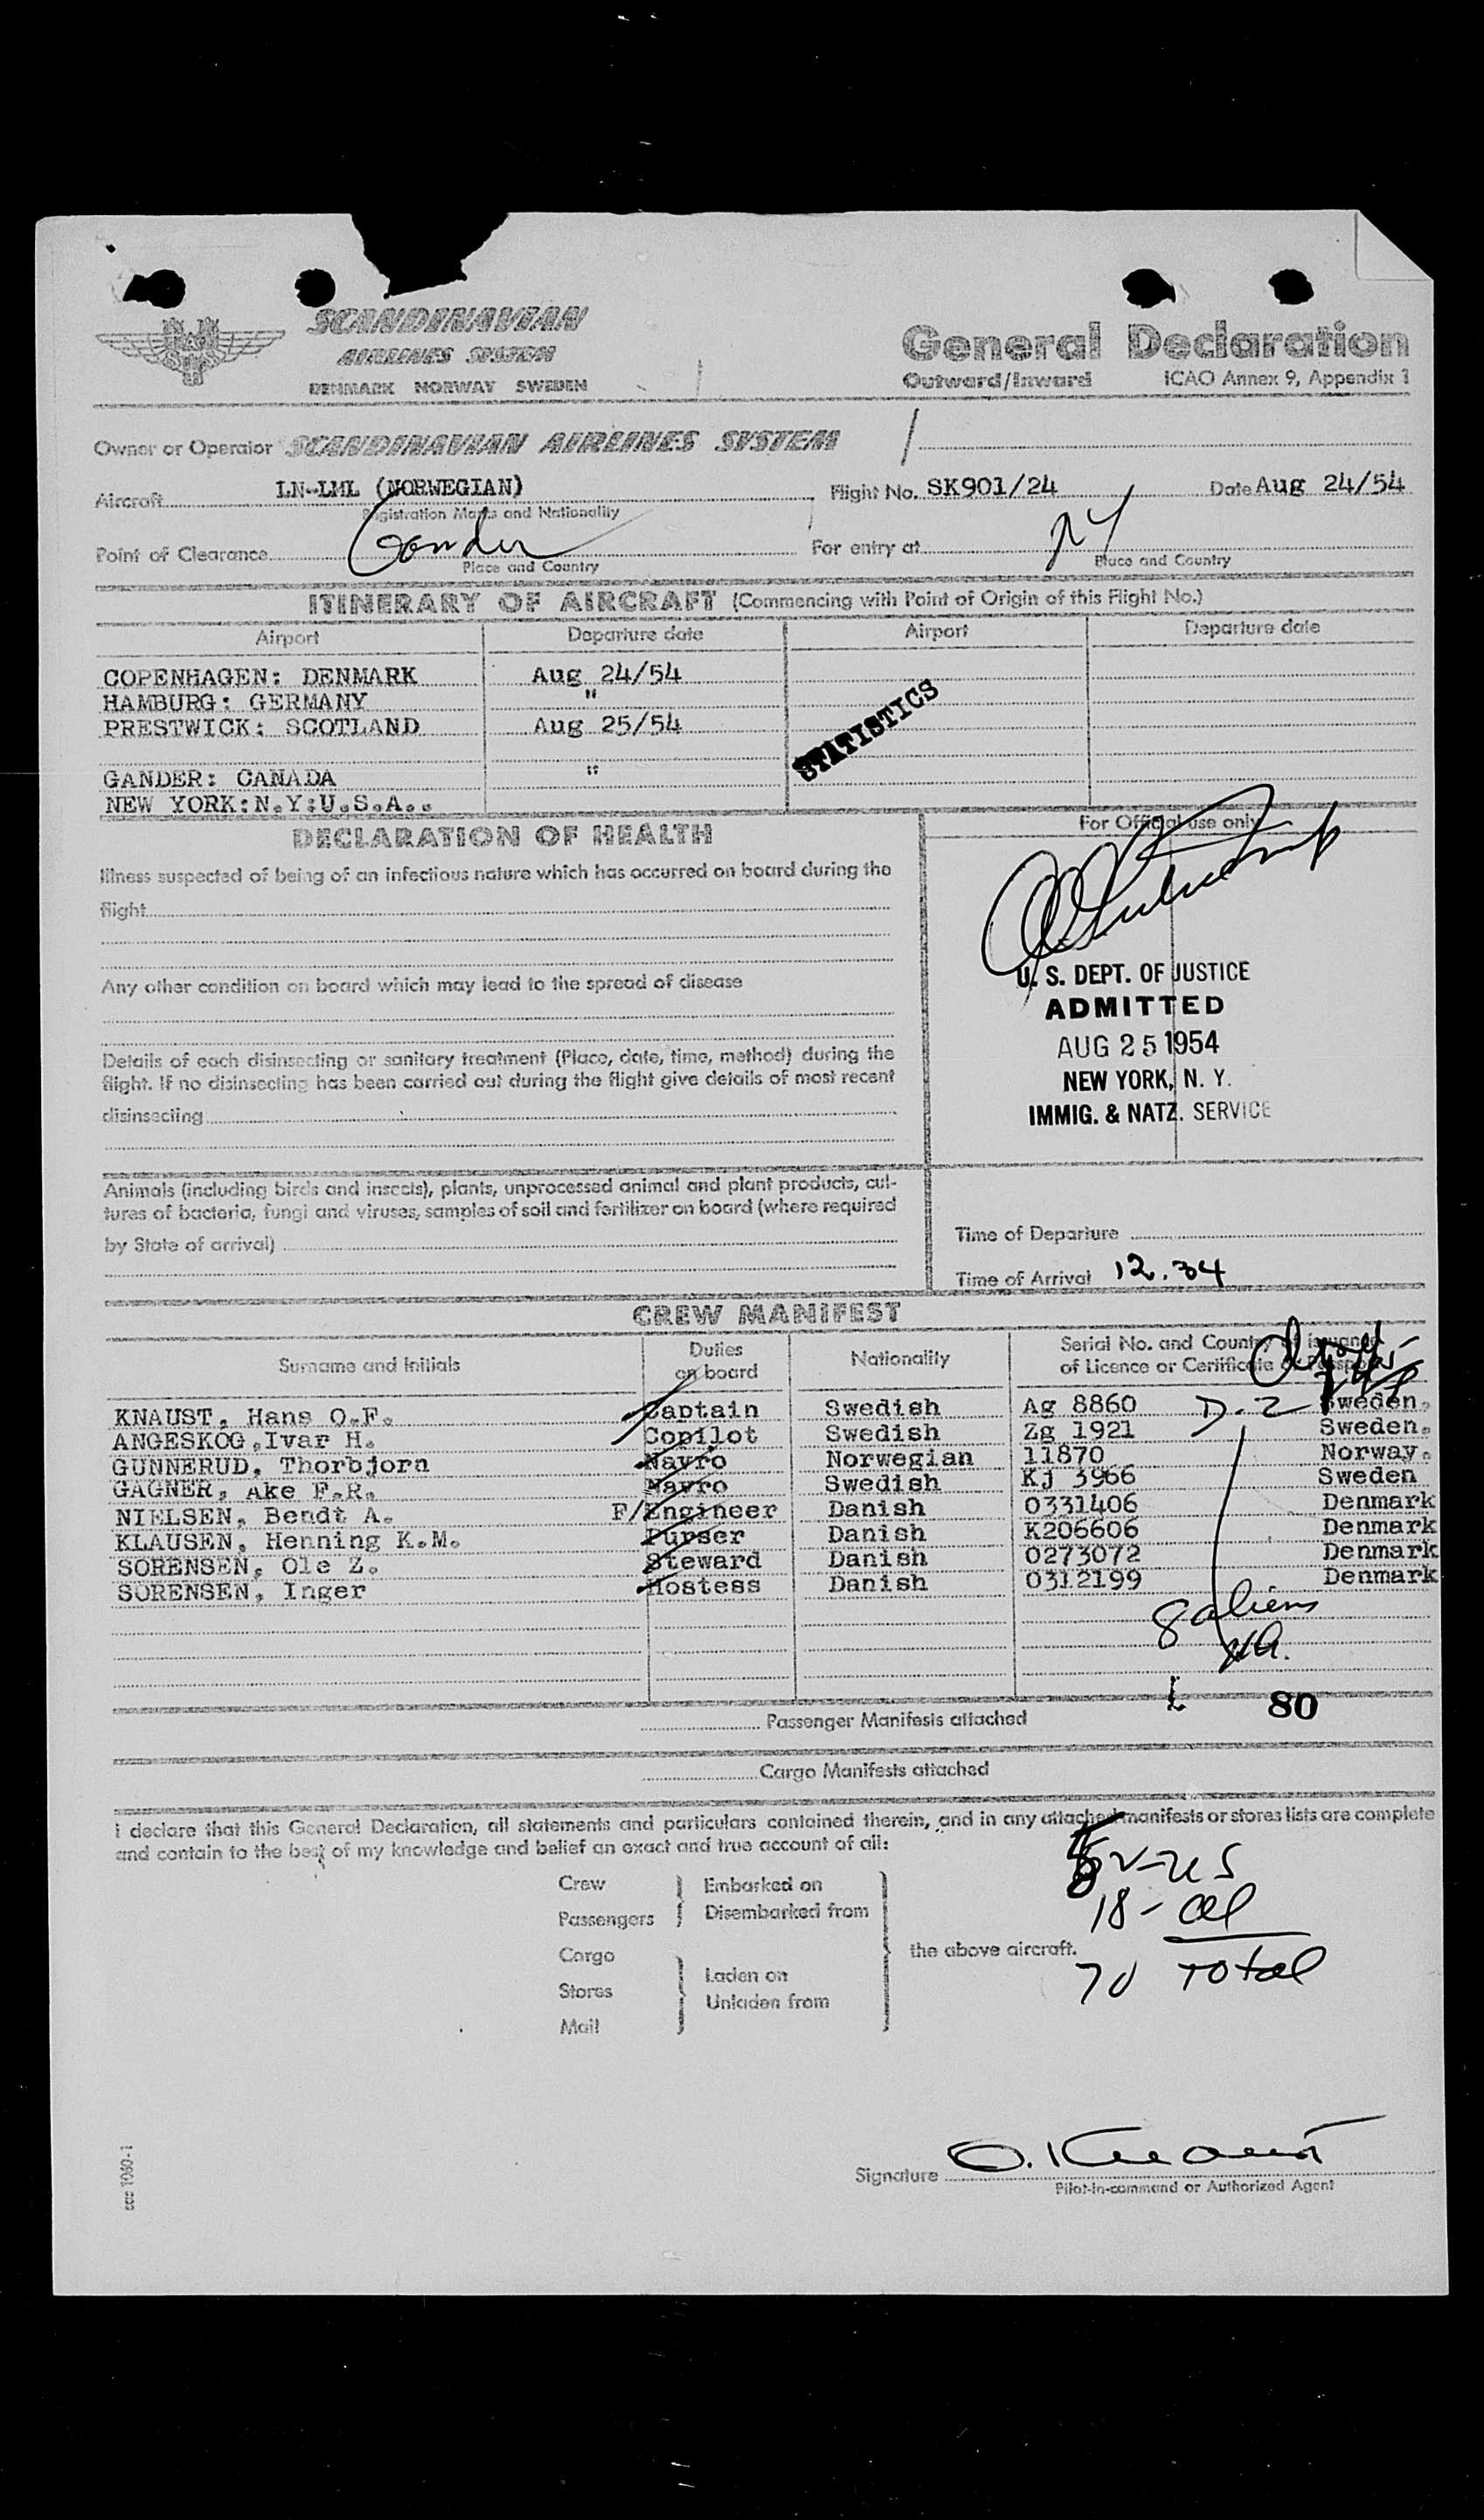 SCANDINAVIAN
AIRLINES SYSTEM
DENMARK NORWAY SWEDEN
General Declaration
Outward/Inward ICAO Annex 9, Appendix 1
Owner or Operator SCANDINAVIAN AIRLINES SYSTEM
Aircraft LN-LML (NORWEGIAN) Flight No. SK901/24 Date Aug 24/54
Registration Marks and Nationality
Point of Clearance Gander For entry at NY
Place and Country Place and Country
ITINERARY OF AIRCRAFT (Commencing with Point of Origin of this Flight No.)
Airport Departure date Airport Departure date
COPENHAGEN: DENMARK Aug 24/54
HAMBURG: GERMANY "
PRESTWICK: SCOTLAND Aug 25/54
STATISTICS
GANDER: CANADA "
NEW YORK:N.Y:U.S.A..
DECLARATION OF HEALTH
For Official use only
Illness suspected of being of an infectious nature which has occurred on board during the
flight
Any other condition on board which may lead to the spread of disease
Details of each disinsecting or sanitary treatment (Place, date, time, method) during the
flight. If no disinsecting has been carried out during the flight give details of most recent
disinsecting
U. S. DEPT. OF JUSTICE
ADMITTED
AUG 25 1954
NEW YORK, N. Y.
IMMIG. & NATZ. SERVICE
Animals (including birds and insects), plants, unprocessed animal and plant products, cul-
tures of bacteria, fungi and viruses, samples of soil and fertilizer on board (where required
by State of arrival)
Time of Departure
Time of Arrival 12.34
CREW MANIFEST
Surname and Initials Duties on board Nationality Serial No. and Country of issuance
of Licence or Certificate or Passport
KNAUST, Hans O.F. Captain Swedish Ag 8860 D-2 Sweden.
ANGESKOG,Ivar H. Copilot Swedish Zg 1921 Sweden.
GUNNERUD, Thorbjorn Navro Norwegian 11870 Norway.
GAGNER, Ake F.R. Navro Swedish Kj 3966 Sweden
NIELSEN, Bendt A. F/Engineer Danish 0331406 Denmark
KLAUSEN, Henning K.M. Purser Danish K206606 Denmark
SORENSEN, Ole Z. Steward Danish 0273072 Denmark
SORENSEN, Inger Hostess Danish 0312199 Denmark
8 aliens
80
Passenger Manifests attached
Cargo Manifests attached
I declare that this General Declaration, all statements and particulars contained therein, and in any attached manifests or stores lists are complete
and contain to the best of my knowledge and belief an exact and true account of all:
Crew
Passengers
Embarked on
Disembarked from
Cargo
Stores
Mail
Laden on
Unladen from
the above aircraft.
52-US
18-al
70 Total
Signature O. Knaust
Pilot-in-command or Authorized Agent